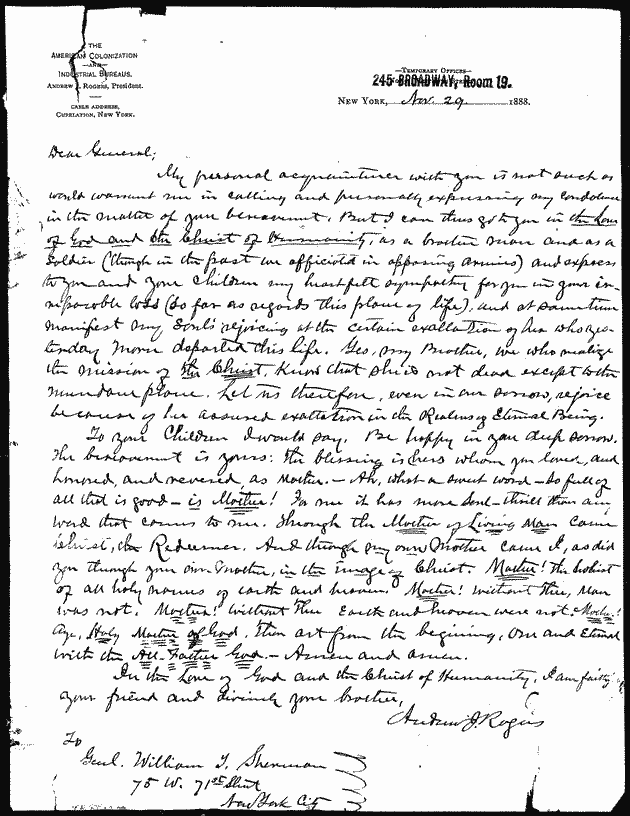 THE
AMERICAN COLONIZATION
—AND—
INDUSTRIAL BUREAUS.
ANDREW J. ROGERS, President.
CABLE ADDRESS,
CUPELATION, NEW YORK.
—TEMPORARY OFFICES—
245 BROADWAY, Room 19.
NEW YORK, Nov. 29 1888.
Dear General;
My personal acquaintance with you is not such as
would warrant me in calling and personally expressing my condolence
in the matter of your bereavment. But I can thus go to you in the Love
of God and the Christ of Humanity, as a brother man and as a
Soldier (though in the past we officiated in opposing armies) and express
to you and your children my heartfelt sympathy for you in your ir-
reparable loss (so far as regards this plane of life), and at same time
manifest my Soul's rejoicing at the certain exaltation of her who yes-
terday morn departed this life. Yes, my Brother, we who realize
the mission of the Christ, Know that she is not dead except to the
mundane plane. Let us therefore, even in our sorrow, rejoice
because of her assured exaltation in the Realms of Eternal Being.
To your Children I would say. Be happy in your deep sorrow.
The bereavement is yours: the blessing is hers whom you loved, and
honored, and revered, as Mother. — Ah, what a sweet word — so full of
all that is good — is Mother! For me it has more Soul-thrill than any
word that comes to me. Through the Mother of Living Man came
Christ, the Redeemer. And through my own Mother came I, as did
you through your own Mother, in the image of Christ. Mother! The holiest
of all holy names of earth and heaven. Mother! Without thee, Man
was not. Mother! Without Thee Earth and heaven were not. Mother!
Aye, Holy Mother of God, thou art from the begining, One and Eternal
with the All-Father God. — Amen and amen.
In the Love of God and the Christ of Humanity, I am faithfully
your friend and divinely your brother,
Andrew J. Rogers
To
Genl. William T. Sherman
75 W. 71st Street
New York City